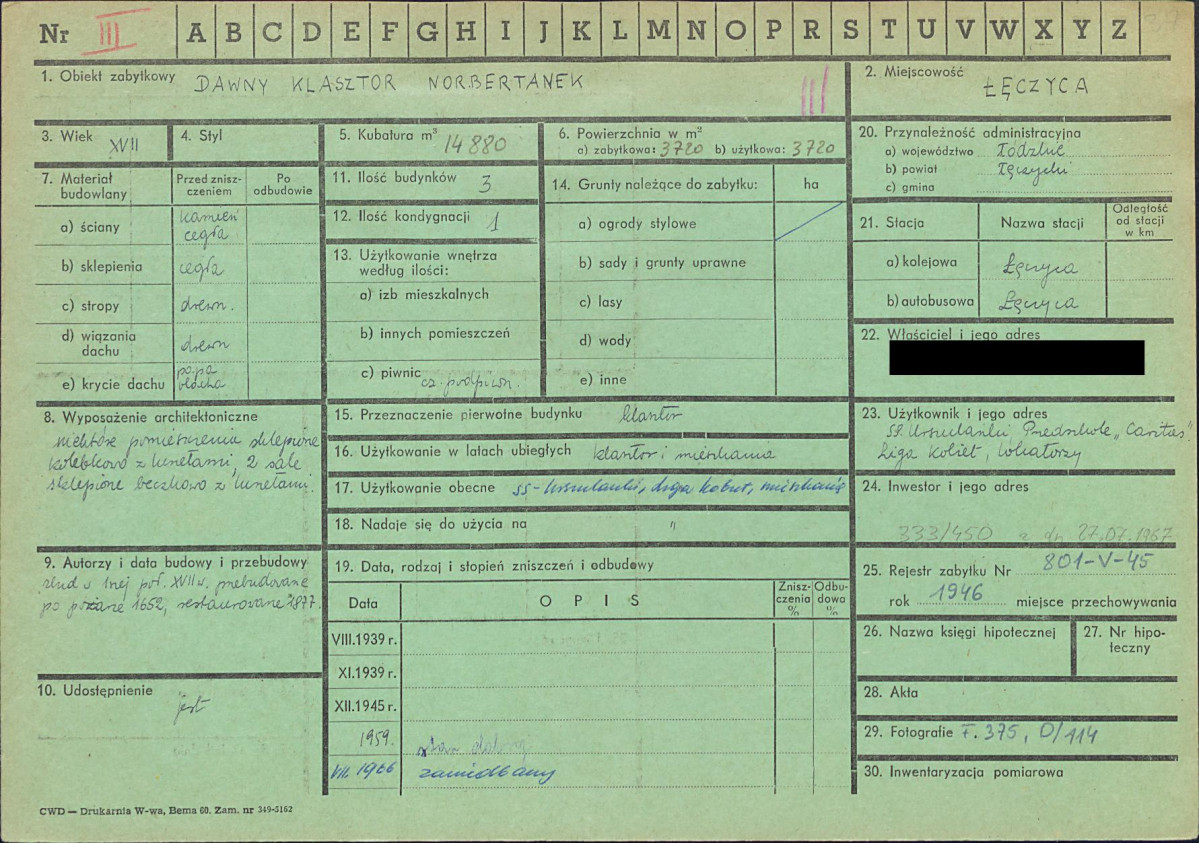 Nr III A B C D E F G H I J K L M N O P R S T U V W X Y Z
1. Obiekt zabytkowy DAWNY KLASZTOR NORBERTANEK III
2. Miejscowość ŁĘCZYCA
3. Wiek XVII
4. Styl
5. Kubatura m³ 14 880
6. Powierzchnia w m²
a) zabytkowa: 3720 b) użytkowa: 3720
7. Materiał budowlany
Przed zniszczeniem
Po odbudowie
a) ściany kamień cegła
b) sklepienia cegła
c) stropy drewn.
d) wiązania dachu drewn
e) krycie dachu papa blacha
8. Wyposażenie architektoniczne
niektóre pomieszczenia sklepione
kolebkowo z lunetami, 2 sale
sklepione beczkowo z lunetami.
9. Autorzy i data budowy i przebudowy
zbud w 1nej poł. XVII w. przebudowane
po pożarze 1652, restaurowane 1877.
10. Udostępnienie
jest
11. Ilość budynków 3
12. Ilość kondygnacji 1
13. Użytkowanie wnętrza
według ilości:
a) izb mieszkalnych
b) innych pomieszczeń
c) piwnic cz. podpiwn.
14. Grunty należące do zabytku:
ha
a) ogrody stylowe
b) sady i grunty uprawne
c) lasy
d) wody
e) inne
15. Przeznaczenie pierwotne budynku klasztor
16. Użytkowanie w latach ubiegłych klasztor i mieszkania
17. Użytkowanie obecne SS-Urszulanki, Liga kobiet, mieszkania
18. Nadaje się do użycia na "
19. Data, rodzaj i stopień zniszczeń i odbudowy
Data
OPIS
Zniszczenia %
Odbudowa %
VIII.1939 r.
XI.1939 r.
XII.1945 r.
1959. stan dobry
VII. 1966 zaniedbany
20. Przynależność administracyjna
a) województwo Łódzkie
b) powiat Łęczycki
c) gmina
21. Stacja
Nazwa stacji
Odległość
od stacji
w km
a) kolejowa Łęczyca
b) autobusowa Łęczyca
22. Właściciel i jego adres
23. Użytkownik i jego adres
SS. Urszulanki Przedszkole „Caritas"
Liga Kobiet, lokatorzy
24. Inwestor i jego adres
333/450 z dn 27.09.1967
25. Rejestr zabytku Nr 801-V-45
rok 1946 miejsce przechowywania
26. Nazwa księgi hipotecznej
27. Nr hipoteczny
28. Akta
29. Fotografie F. 375, D/114
30. Inwentaryzacja pomiarowa
CWD — Drukarnia W-wa, Bema 60. Zam. nr 349-5162